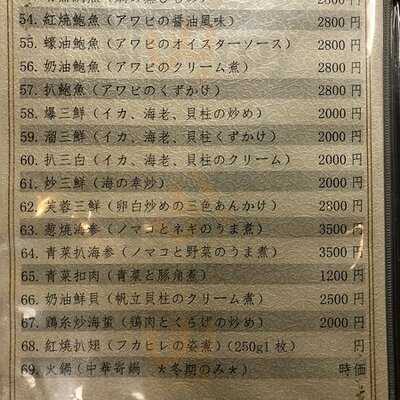 2800円
54. 紅燒鮑魚(アワビの醤油風味) 2800円
55. 蠔油鮑魚(アワビのオイスターソース) 2800円
56. 奶油鮑魚(アワビのクリーム煮) 2800円
57. 扒鮑魚(アワビのくずかけ) 2800円
58. 爆三鮮(イカ、海老、貝柱の炒め) 2000円
59. 溜三鮮(イカ、海老、貝柱くずかけ) 2000円
60. 扒三白(イカ、海老、貝柱のクリーム) 2000円
61. 炒三鮮(海の幸炒) 2000円
62. 芙蓉三鮮(卵白炒めの三色あんかけ) 2800円
63. 葱燒海参(ノマコとネギのうま煮) 3500円
64. 青菜扒海参(ノマコと野菜のうま煮) 3500円
65. 青菜扣肉(青菜と豚角煮) 1200円
66. 奶油鮮貝(帆立貝柱のクリーム煮) 2500円
67. 鶏糸炒海蜇(鶏肉とくらげの炒め) 2000円
68. 紅燒扒翅(フカヒレの姿煮)(250g1枚) 円
69. 火鍋(中華寄鍋 *冬期のみ*) 時価